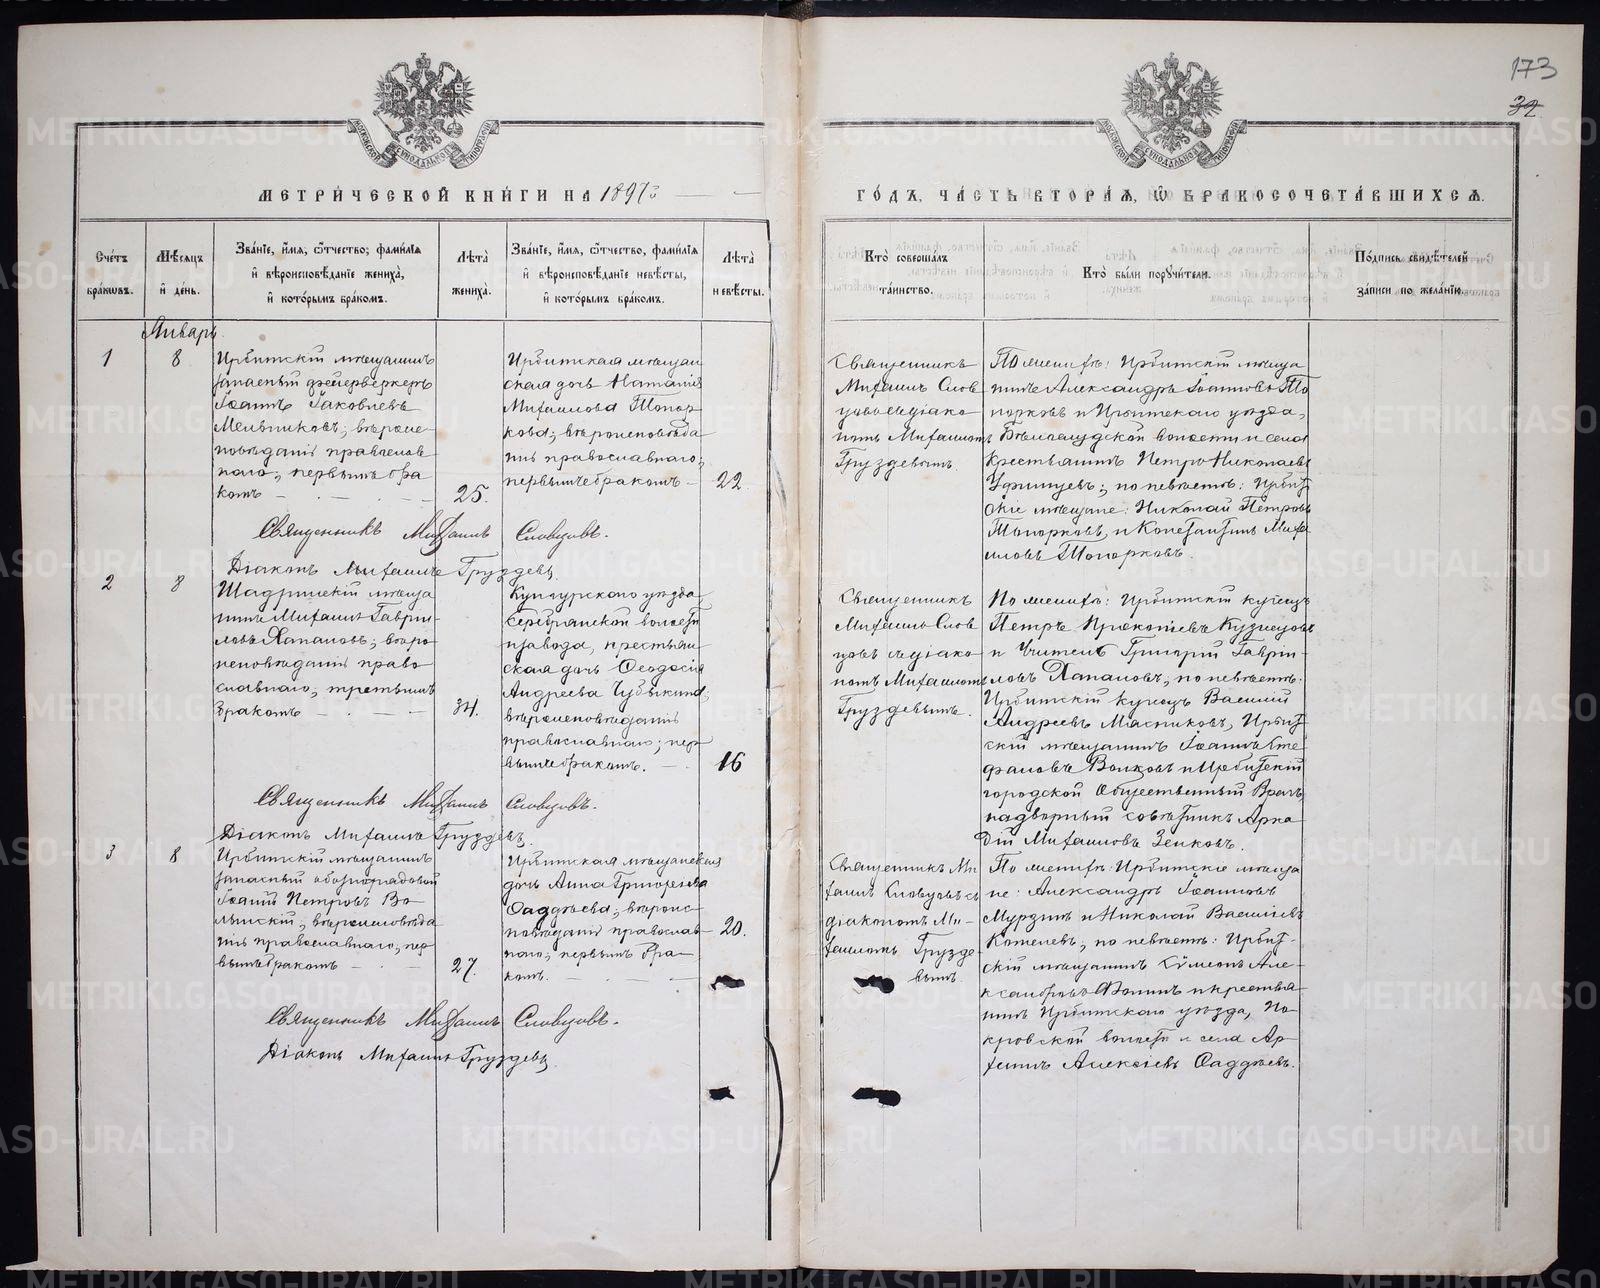 173
32
МОСКОВСКОЙ СѴНОДАЛЬНОЙ ТИПОГРАФІИ
МОСКОВСКОЙ СѴНОДАЛЬНОЙ ТИПОГРАФІИ
МЕТРИ́ЧЕСКОЙ КНИ́ГИ НА 1897г
ГО́ДЪ, ЧА́СТЬ ВТОРА́Я, Ѿ БРАКОСОЧЕТА́ВШИХСЯ.
Сче́тъ
бра́кωвъ.
Мѣ́сяцъ
и҆ де́нь.
Зва́нїе, и҆́мя, ѻ҆́тчество, фами́лїя
и҆ вѣроисповѣ́данїе жениха̀,
и҆ кото́рымъ бра́комъ.
Лѣта̀
жениха̀.
Зва́нїе, и҆́мя, ѻ҆́тчество, фами́лїя
и҆ вѣроисповѣ́данїе невѣ́сты,
и҆ кото́рымъ бра́комъ.
Лѣта̀
невѣ́сты.
Кто̀ соверша́лъ
та́инство.
Кто̀ бы́ли порꙋчи́тели.
По́дпись свидѣ́телей
за́писи по жела́нїю.
Январь
1
8
Ирбитскій мѣщанинъ
запасный фейерверкеръ
Іоаннъ Іаковлевъ
Мельниковъ; вѣроис-
повѣданія православ
наго, первымъ бра
комъ
25.
Ирбитская мѣщан
ская дочь Наталія
Михаилова Топор-
кова; вѣроисповѣда
нія православнаго;
первымъ бракомъ
22
Священникъ
Михаилъ Слов
цовъ съ діако
номъ Михаиломъ
Груздевымъ.
По женихѣ: Ирбитскій мѣща
нинъ Александръ Іоанновъ То
порковъ и Ирбитскаго уѣзда,
Бѣлослудской волости и села
крестьянинъ Петръ Николаевъ
Уфинцевъ; по невѣстѣ: Ирбит
скіе мѣщане: Николай Петровъ
Топорковъ, и Константинъ Миха
иловъ Топорковъ.
Священникъ Михаилъ Словцовъ.
Діаконъ Михаилъ Груздевъ
2
8
Шадринскій мѣща
нинъ Михаилъ Гаврии-
ловъ Хапаловъ; вѣро
исповѣданія право
славнаго, третьимъ
бракомъ
34.
Кунгурскаго уѣзда,
Серебрянской волости
и завода, крестьян
ская дочь Ѳеодосія
Андреева Чубыкина;
вѣроисповѣданія
православнаго; пер
вымъ бракомъ.
16
Священникъ
Михаилъ Слов
цовъ съ діако
номъ Михаиломъ
Груздевымъ.
По женихѣ: Ирбитскій купецъ
Петръ Прокопіевъ Кузнецовъ
и Учитель Григорій Гавріи-
ловъ Хапаловъ, по невѣстѣ:
Ирбитскій купецъ Василій
Андреевъ Мясниковъ, Ирбит
скій мѣщанинъ Іоаннъ Сте
фановъ Волковъ и Ирбитскій
городской Общественный Врачъ,
надворный совѣтникъ Арка
дій Михаиловъ Зенковъ.
Священникъ Михаилъ Словцовъ.
Діаконъ Михаилъ Груздевъ.
3
8
Ирбитскій мѣщанинъ
запасный обознорядовый
Іоаннъ Петровъ Во-
лынскій; вѣроисповѣда
нія православнаго, пер
вымъ бракомъ
27.
Ирбитская мѣщанская
дочь Анна Григорьева
Фаддѣева; вѣроис-
повѣданія православ-
наго, первымъ бра-
комъ.
20.
Священникъ Ми
хаилъ Словцовъ съ
діакономъ Ми-
хаиломъ Грузде
вымъ
По женихѣ Ирбитскіе мѣща
не: Александръ Іоанновъ
Мурзинъ и Николай Васильевъ
Котелевъ; по невѣстѣ: Ирбит-
скій мѣщанинъ Сѷмеонъ Але-
ксандровъ Ѳоминъ и крестья
нинъ Ирбитскаго уѣзда, По
кровской волости и села Ар
хипъ Алексіевъ Фаддѣевъ.
Священникъ Михаилъ Словцовъ.
Діаконъ Михаилъ Груздевъ.